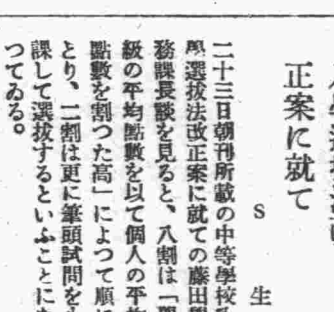 正案に就て
S 生
二十三日朝刊所載の中等學校
學選拔法改正案に就ての藤田學
務課長談を見ると、八割は「學
級の平均點數を以て個人の平均
點數を割つた高」によつて順に
とり、二割は更に筆頭試問を
課して選拔するといふことに
つてゐる。